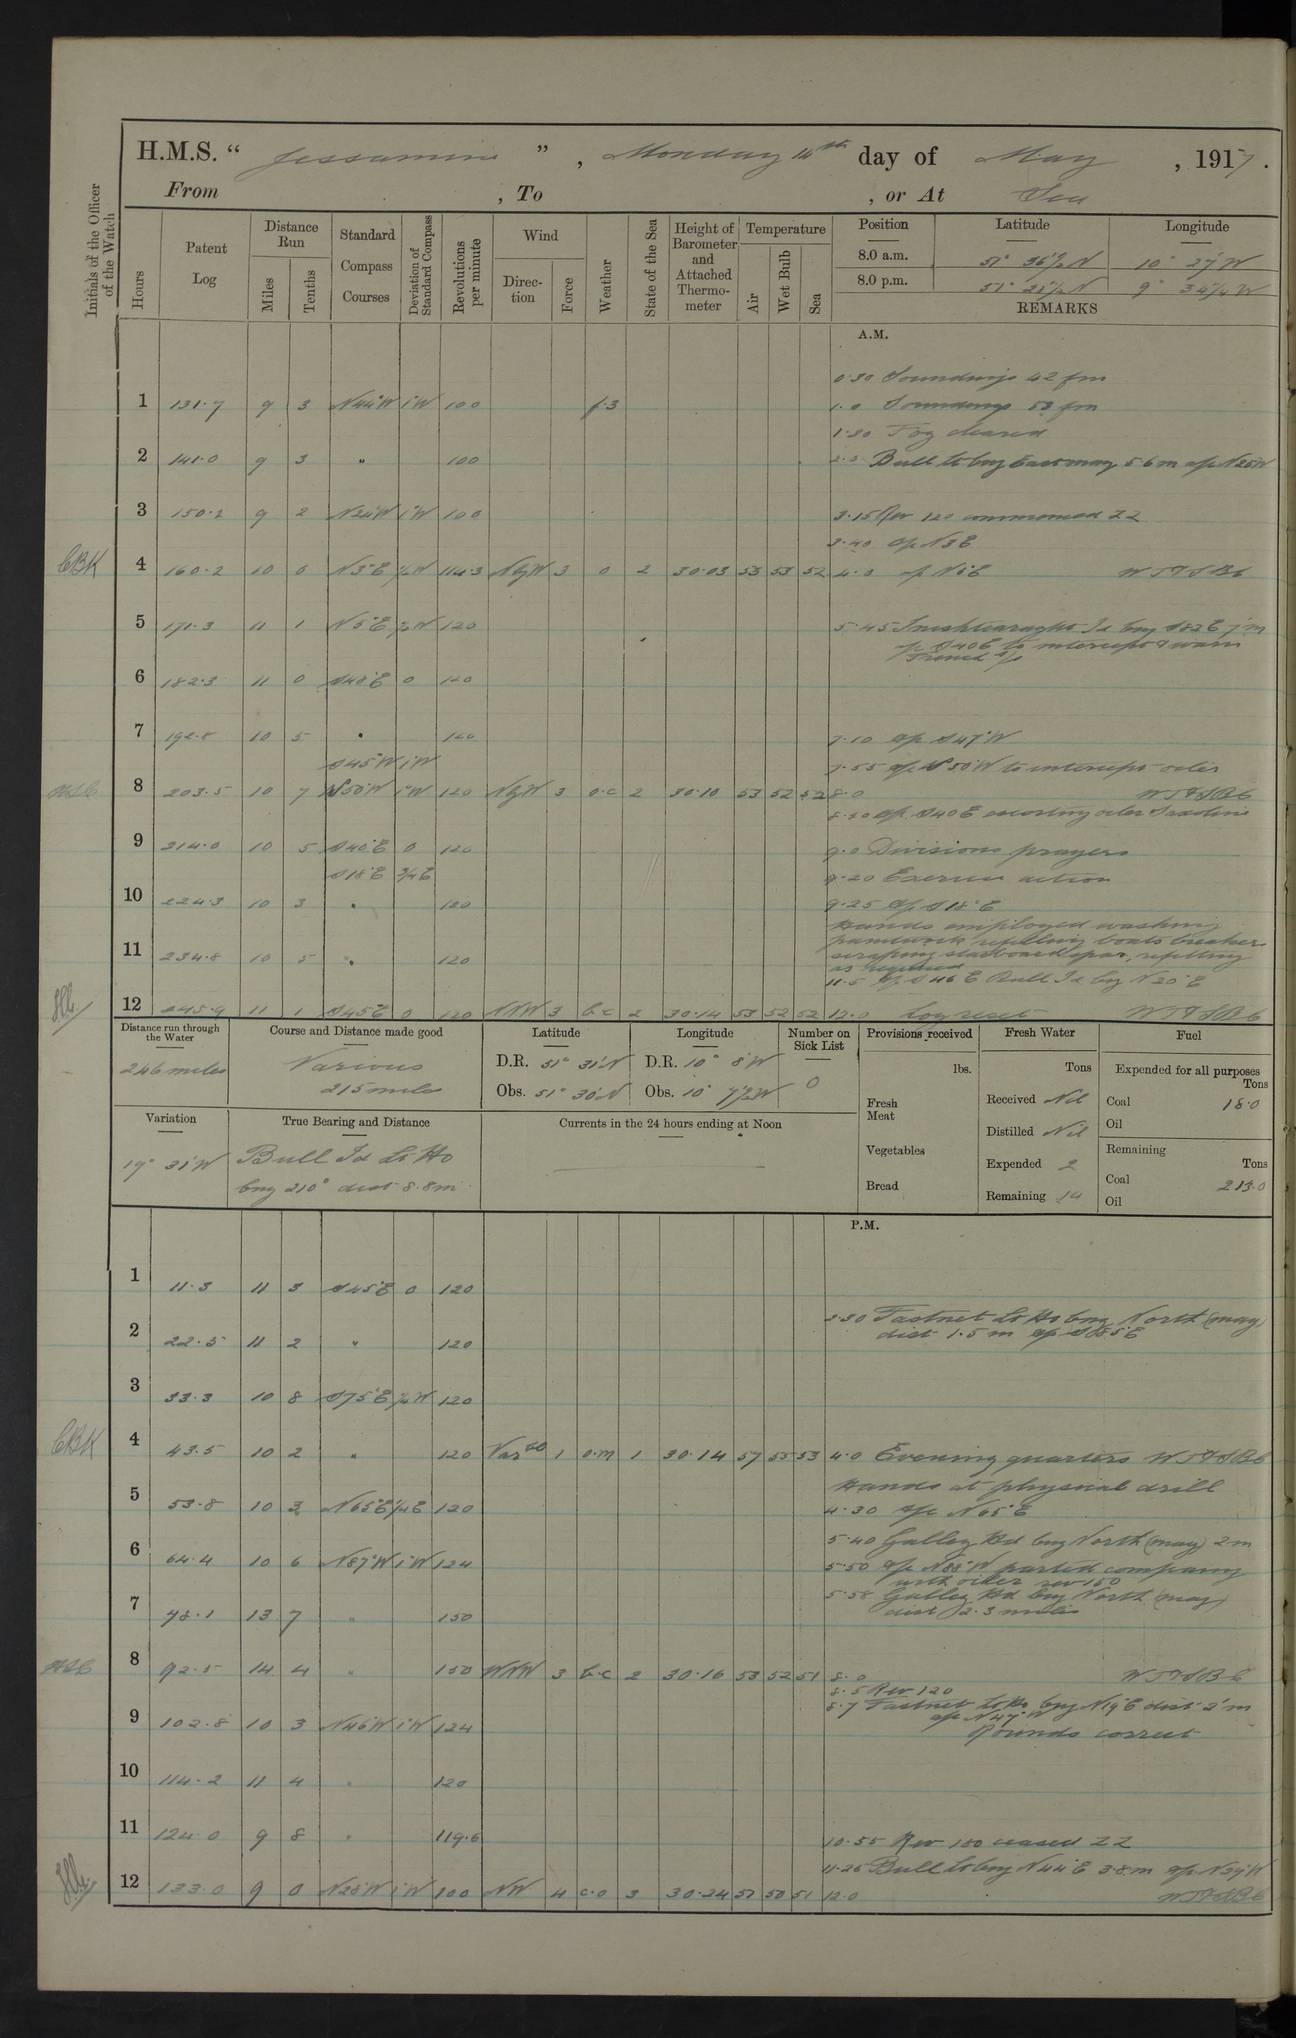 H.M.S. “ Jessamine ” , Monday 14th day of May , 1917 .
From , To , or At Sea
Initials of the Officer of the Watch
Hours
Patent Log
Distance Run
Miles
Tenths
Standard Compass Courses
Deviation of Standard Compass
Revolutions per minute
Wind
Direction
Force
Weather
State of the Sea
Height of Barometer and Attached Thermometer
Temperature
Air
Wet Bulb
Sea
Position Latitude Longitude
8.0 a.m. 51° 36½ N 10° 27' W
8.0 p.m. 51° 25½ N 9° 34¼ W
REMARKS
A.M.
0.30 Soundings 42 fm
1 131.7 9 3 N44°W 1°W 100 f.3 1.0 Soundings 53 fm
1.30 Fog cleared
2 141.0 9 3 " 100 2.0 Bull Lt brg East mag 5.6 m a/c N25W
3 150.2 9 2 N24°W 1°W 100 3.15 Rev 120 commenced ZZ
3.40 a/c N3E
CBK 4 160.2 10 0 N3°E ½W 114.3 NbyW 3 0 2 30.03 53 53 52 4.0 a/c N5E WTHSB6
5 171.3 11 1 N5°E ½W 120 5.45 Inishtearaght Id brg S82E 7'm
a/c S40E to intercept & warn
French s/s
6 182.3 11 0 S40°E 0 120
7 192.8 10 5 " 120 7.10 a/c S47°W
S45°W 1°W 7.55 a/c S50°W to intercept oiler
8 203.5 10 7 S50°W 1°W 120 NbyW 3 o.c 2 30.10 53 52 52 8.0 WTHSB6
8.20 a/c S40E escorting oiler
9 214.0 10 5 S40°E 0 120 9.0 Divisions prayers
S18°E ¾E 9.20 Exercise action
10 224.3 10 3 " 120 9.25 a/c S18°E
Hands employed washing
paintwork refilling boats breaker
scraping starboard spar, refitting
as required
11 234.8 10 5 " 120 11.5 a/c S46E Bull Id brg N20°E
12 245.9 11 1 S45°E 0 120 NNW 3 b.c 2 30.14 53 52 52 12.0 Log reset WTHSB6
Distance run through the Water
246 miles
Course and Distance made good
Various
215 miles
Latitude
D.R. 51° 31' N
Obs. 51° 30' N
Longitude
D.R. 10° 8' W
Obs. 10° 7½ W
Number on Sick List
0
Provisions received
lbs.
Fresh Meat
Vegetables
Bread
Fresh Water
Tons
Received Nil
Distilled Nil
Expended 2
Remaining 14
Fuel
Expended for all purposes
Tons
Coal 18.0
Oil
Remaining
Tons
Coal 213.0
Oil
Variation
19° 31' W
True Bearing and Distance
Bull Id Lt Ho
brg 210° dist 8.8m
Currents in the 24 hours ending at Noon
P.M.
1 11.3 11 3 S45°E 0 120
3.30 Fastnet Lt Ho brg North (mag)
2 22.5 11 2 " 120 dist 1.5 m a/c S85°E
3 33.3 10 8 S75°E ½W 120
CBK 4 43.5 10 2 " 120 Varble 1 o.m 1 30.14 57 55 53 4.0 Evening quarters WTHSB6
Hands at physical drill
5 53.8 10 3 N65°E ¼E 120 4.30 a/c N65°E
5.40 Galley Hd brg North (mag) 2m
6 64.4 10 6 N87°W 1°W 124 5.50 a/c N88°W parted company
with oiler rev 150
5.58 Galley Hd brg North (mag)
7 78.1 13 7 " 150 dist 2.3 miles
8 92.5 14 4 " 150 WNW 3 b.c 2 30.16 53 52 51 8.0 WTHSB6
8.5 Rev 120
8.7 Fastnet Lt Ho brg N19E dist 2'm
a/c N47°W
9 102.8 10 3 N46°W 1°W 124 Rounds correct
10 114.2 11 4 " 120
11 124.0 9 8 " 119.6 10.55 Rev 100 ceased ZZ
11.26 Bull Lt brg N44°E 3.8m a/c N29°W
12 133.0 9 0 N28°W 1°W 100 NW 4 c.o 3 30.24 51 50 51 12.0 WTHSB6